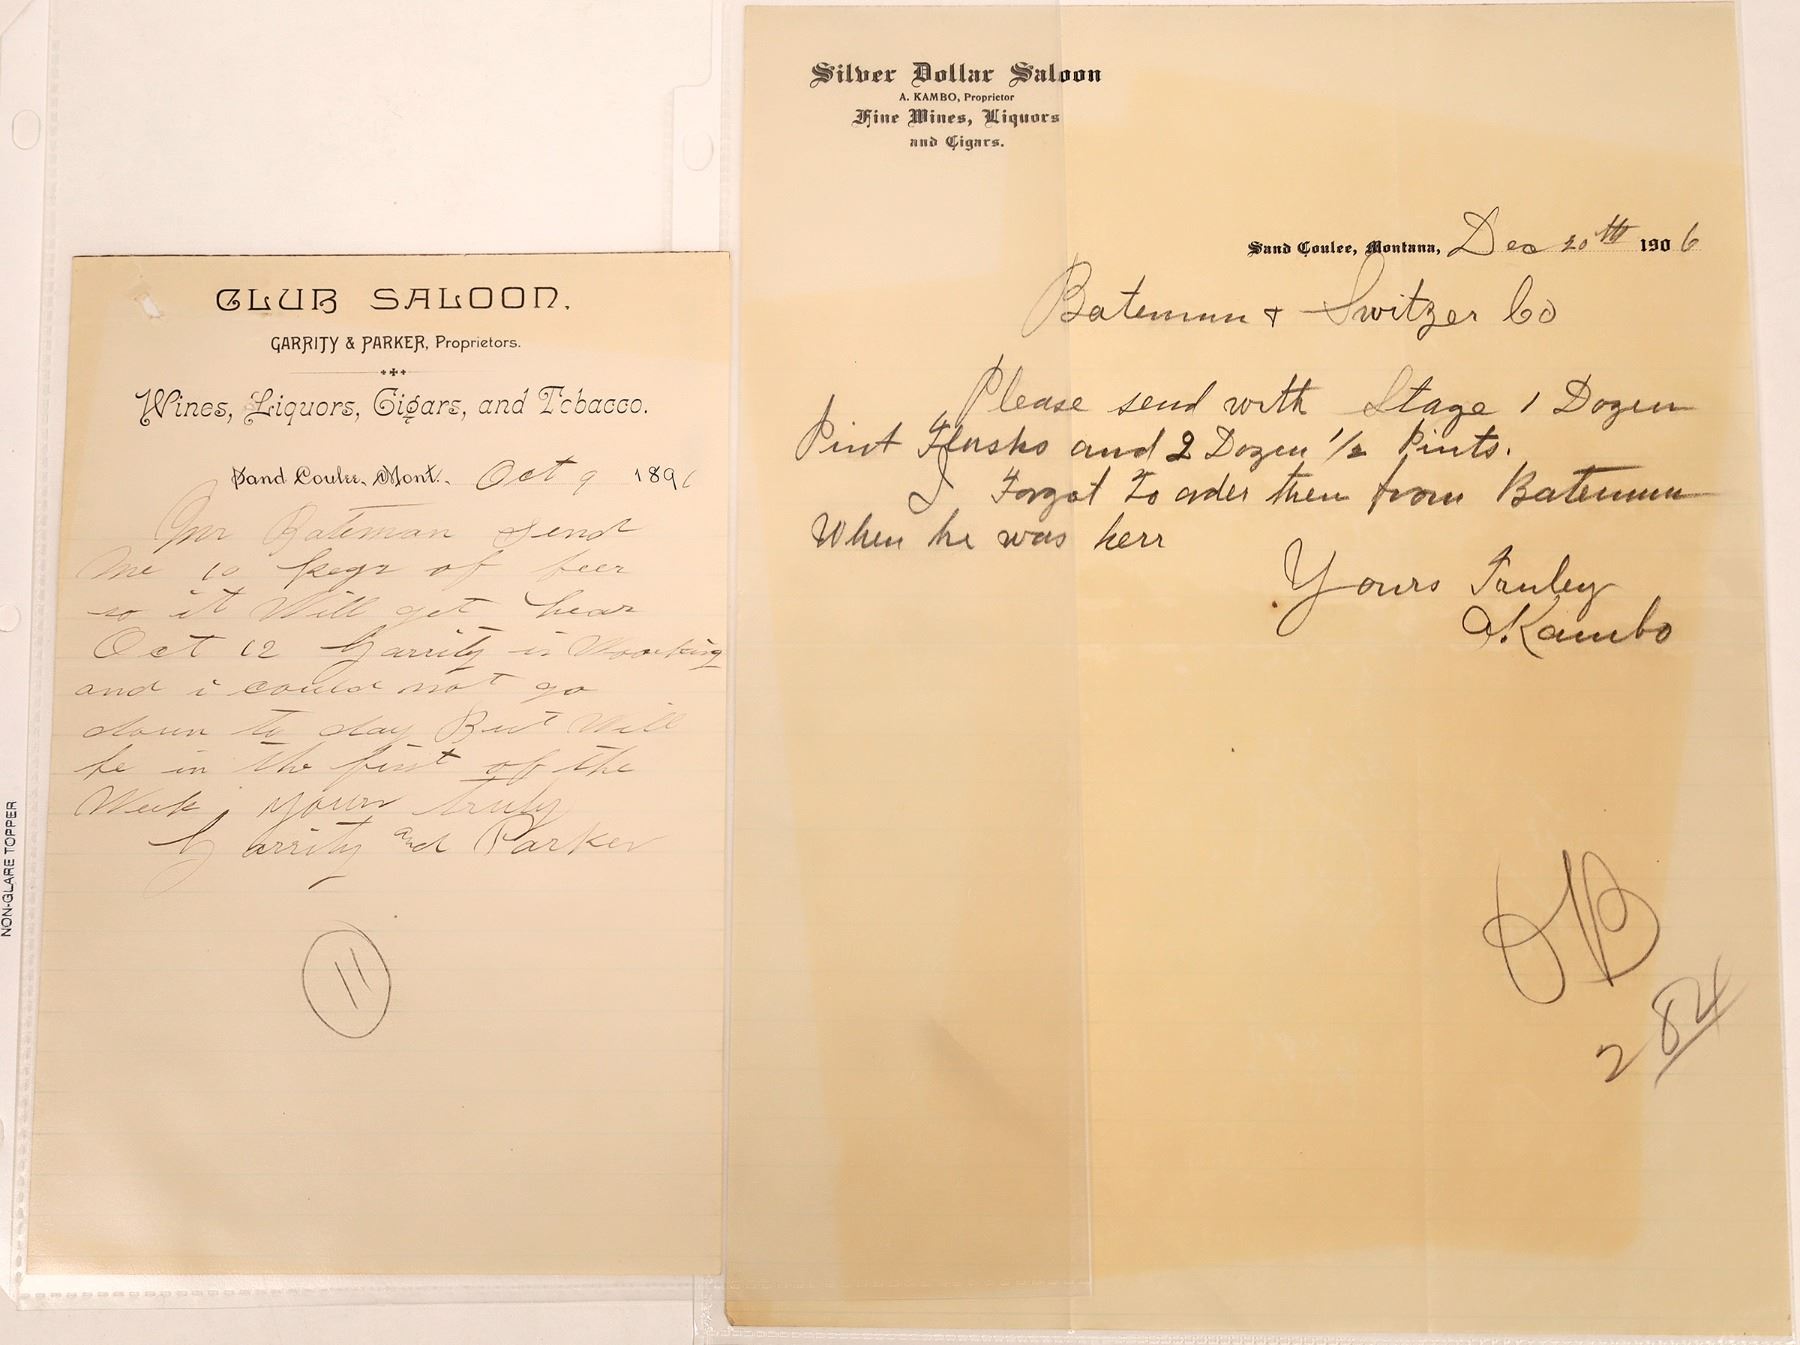 NON-GLARE TOPPER
CLUB SALOON.
GARRITY & PARKER, Proprietors.
Wines, Liquors, Cigars, and Tobacco.
Sand Coulee, Mont. Oct 9 1896
Mr Bateman Send
Me 10 kegs of beer
so it Will get hear
Oct 12 Garrity is Woorking
and i could not go
down to day But Will
be in the first of the
Week. yours truly
Garrity and Parker
11
Silver Dollar Saloon
A. KAMBO, Proprietor
Fine Wines, Liquors
and Cigars.
Sand Coulee, Montana, Dec 20th 1906
Bateman & Switzer Co
Please send with Stage 1 Dozen
Pint Flasks and 2 Dozen 1/2 Pints.
I Forgot To order them from Bateman
When he was herr
Yours Truley
A. Kambo
284